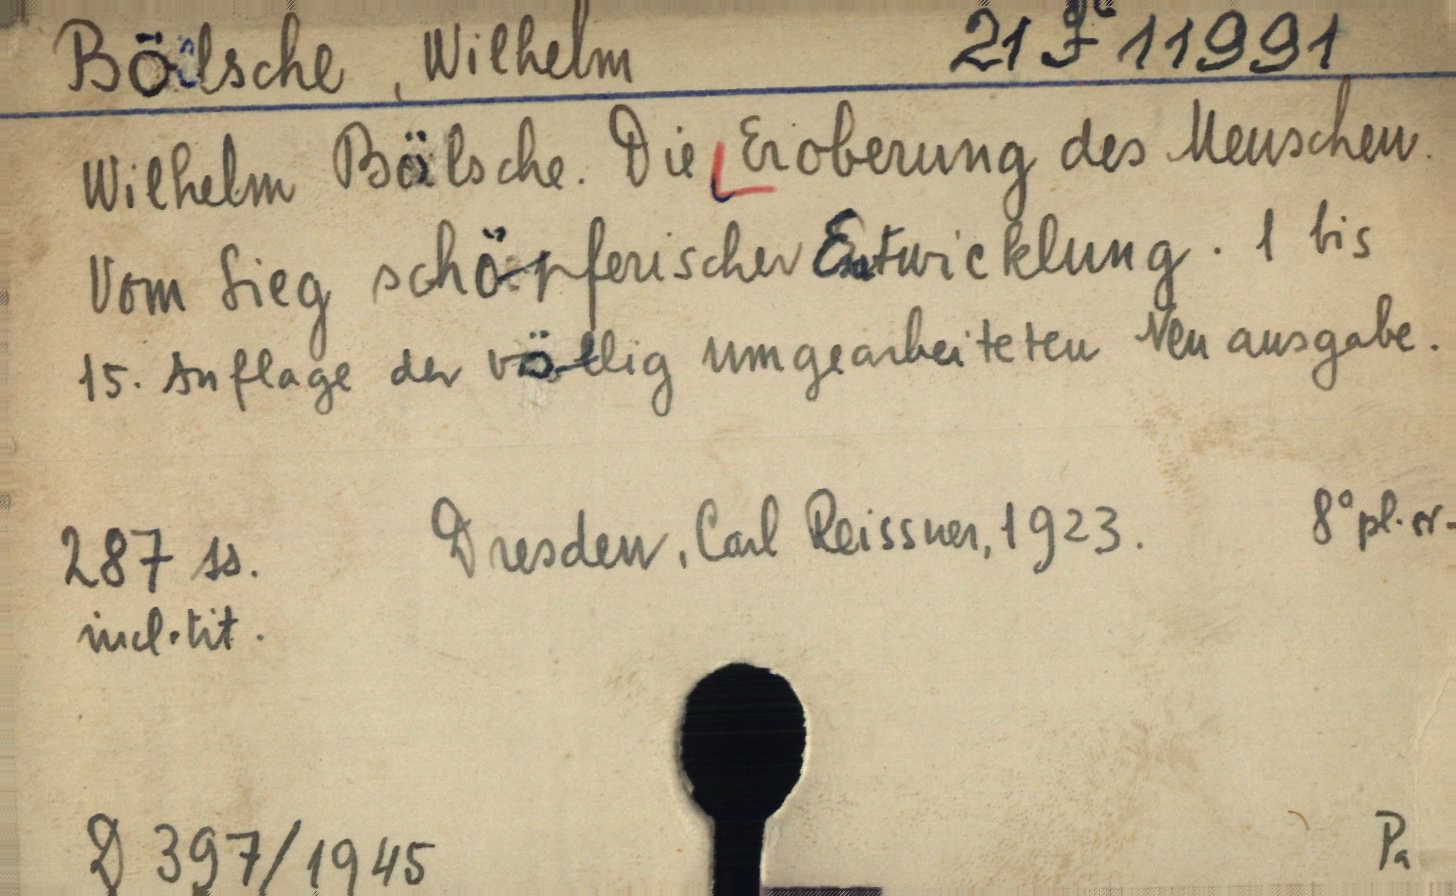 Bölsche, Wilhelm 21 F 11991
Wilhelm Bölsche. Die Eroberung des Menschen.
Vom Sieg schöpferischer Entwicklung. 1 bis
15. Auflage der völlig umgearbeiteten Neuausgabe.
287 ss. Dresden, Carl Reissner, 1923. 8° pl. or.
incl. tit.
D 397/1945 Pa